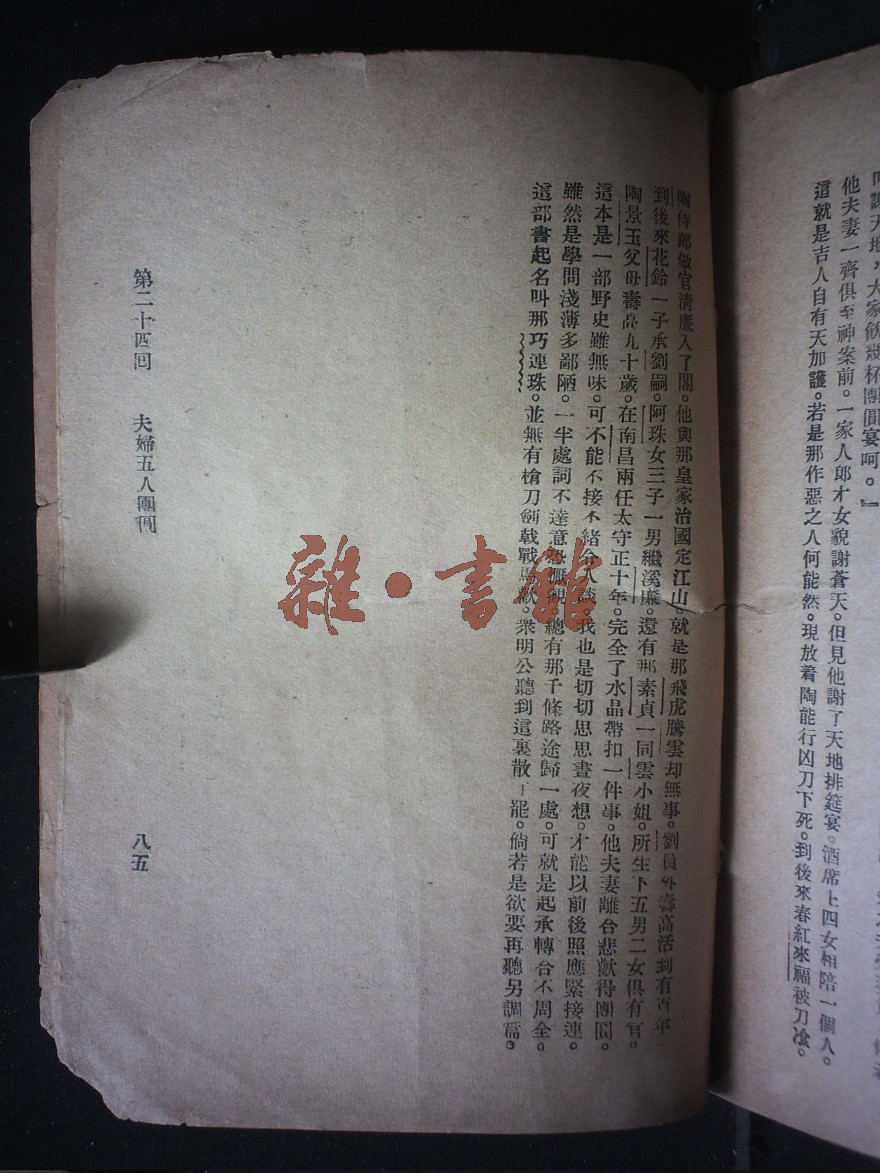 謝天地,大家飲幾杯團圓宴呵。』
他夫妻一齊俱至神案前。一家人郎才女貌謝蒼天。但見他謝了天地排筵宴。酒席上四女相陪一個人。
這就是吉人自有天加護。若是那作惡之人何能然。現放着陶能行凶刀下死。到後來春紅來福被刀飡。
陶侍郎做官淸廉入了閣。他與那皇家治國定江山。就是那飛虎騰雲却無事。劉員外壽高活到有百年
到後來花鈴一子承劉嗣。阿珠女三子一男繼溪廉。還有那素貞一同雲小姐。所生下五男二女俱有官。
陶景玉父母壽高九十歲。在南昌兩任太守正十年。完全了水晶帶扣一件事。他夫妻離合悲歡得團圓。
這本是一部野史雖無味。可不能不接不緒合人談。我也是切切思思晝夜想。才能以前後照應緊接連。
雖然是學問淺薄多鄙陋。一半處詞不達意恐觀。總有那千條路途歸一處。可就是起承轉合不周全。
這部書起名叫那巧連珠。並無有槍刀劍戟戰馬歡。衆明公聽到這裏散了罷。倘若是欲要再聽另調篇。
第二十四回 夫婦五人團圓
八五
雜·書館